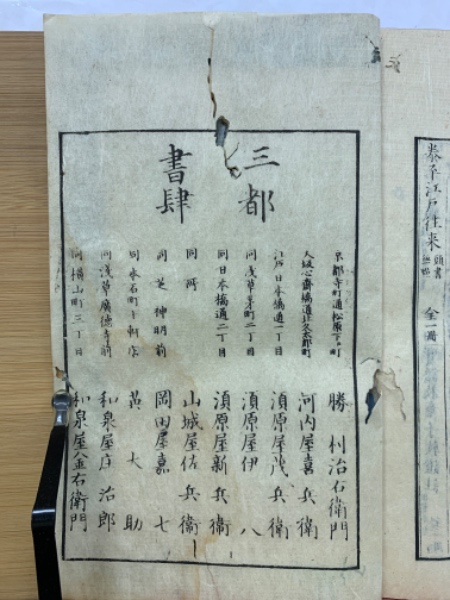 泰平江戸往来 頭書 絵抄 全一冊
三都
書肆
京都寺町通松原下ル町 勝村治右衛門
大坂心斎橋通北久太郎町 河内屋喜兵衛
江戸日本橋通一丁目 須原屋茂兵衛
同浅草茅町二丁目 須原屋伊八
同日本橋通二丁目 須原屋新兵衛
同所 山城屋佐兵衛
同芝神明前 岡田屋嘉七
同本石町十軒店 英大助
同浅草廣徳寺前 和泉屋庄治郎
同横山町三丁目 和泉屋金右衛門